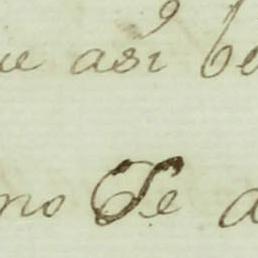 ue asi be
mo se a